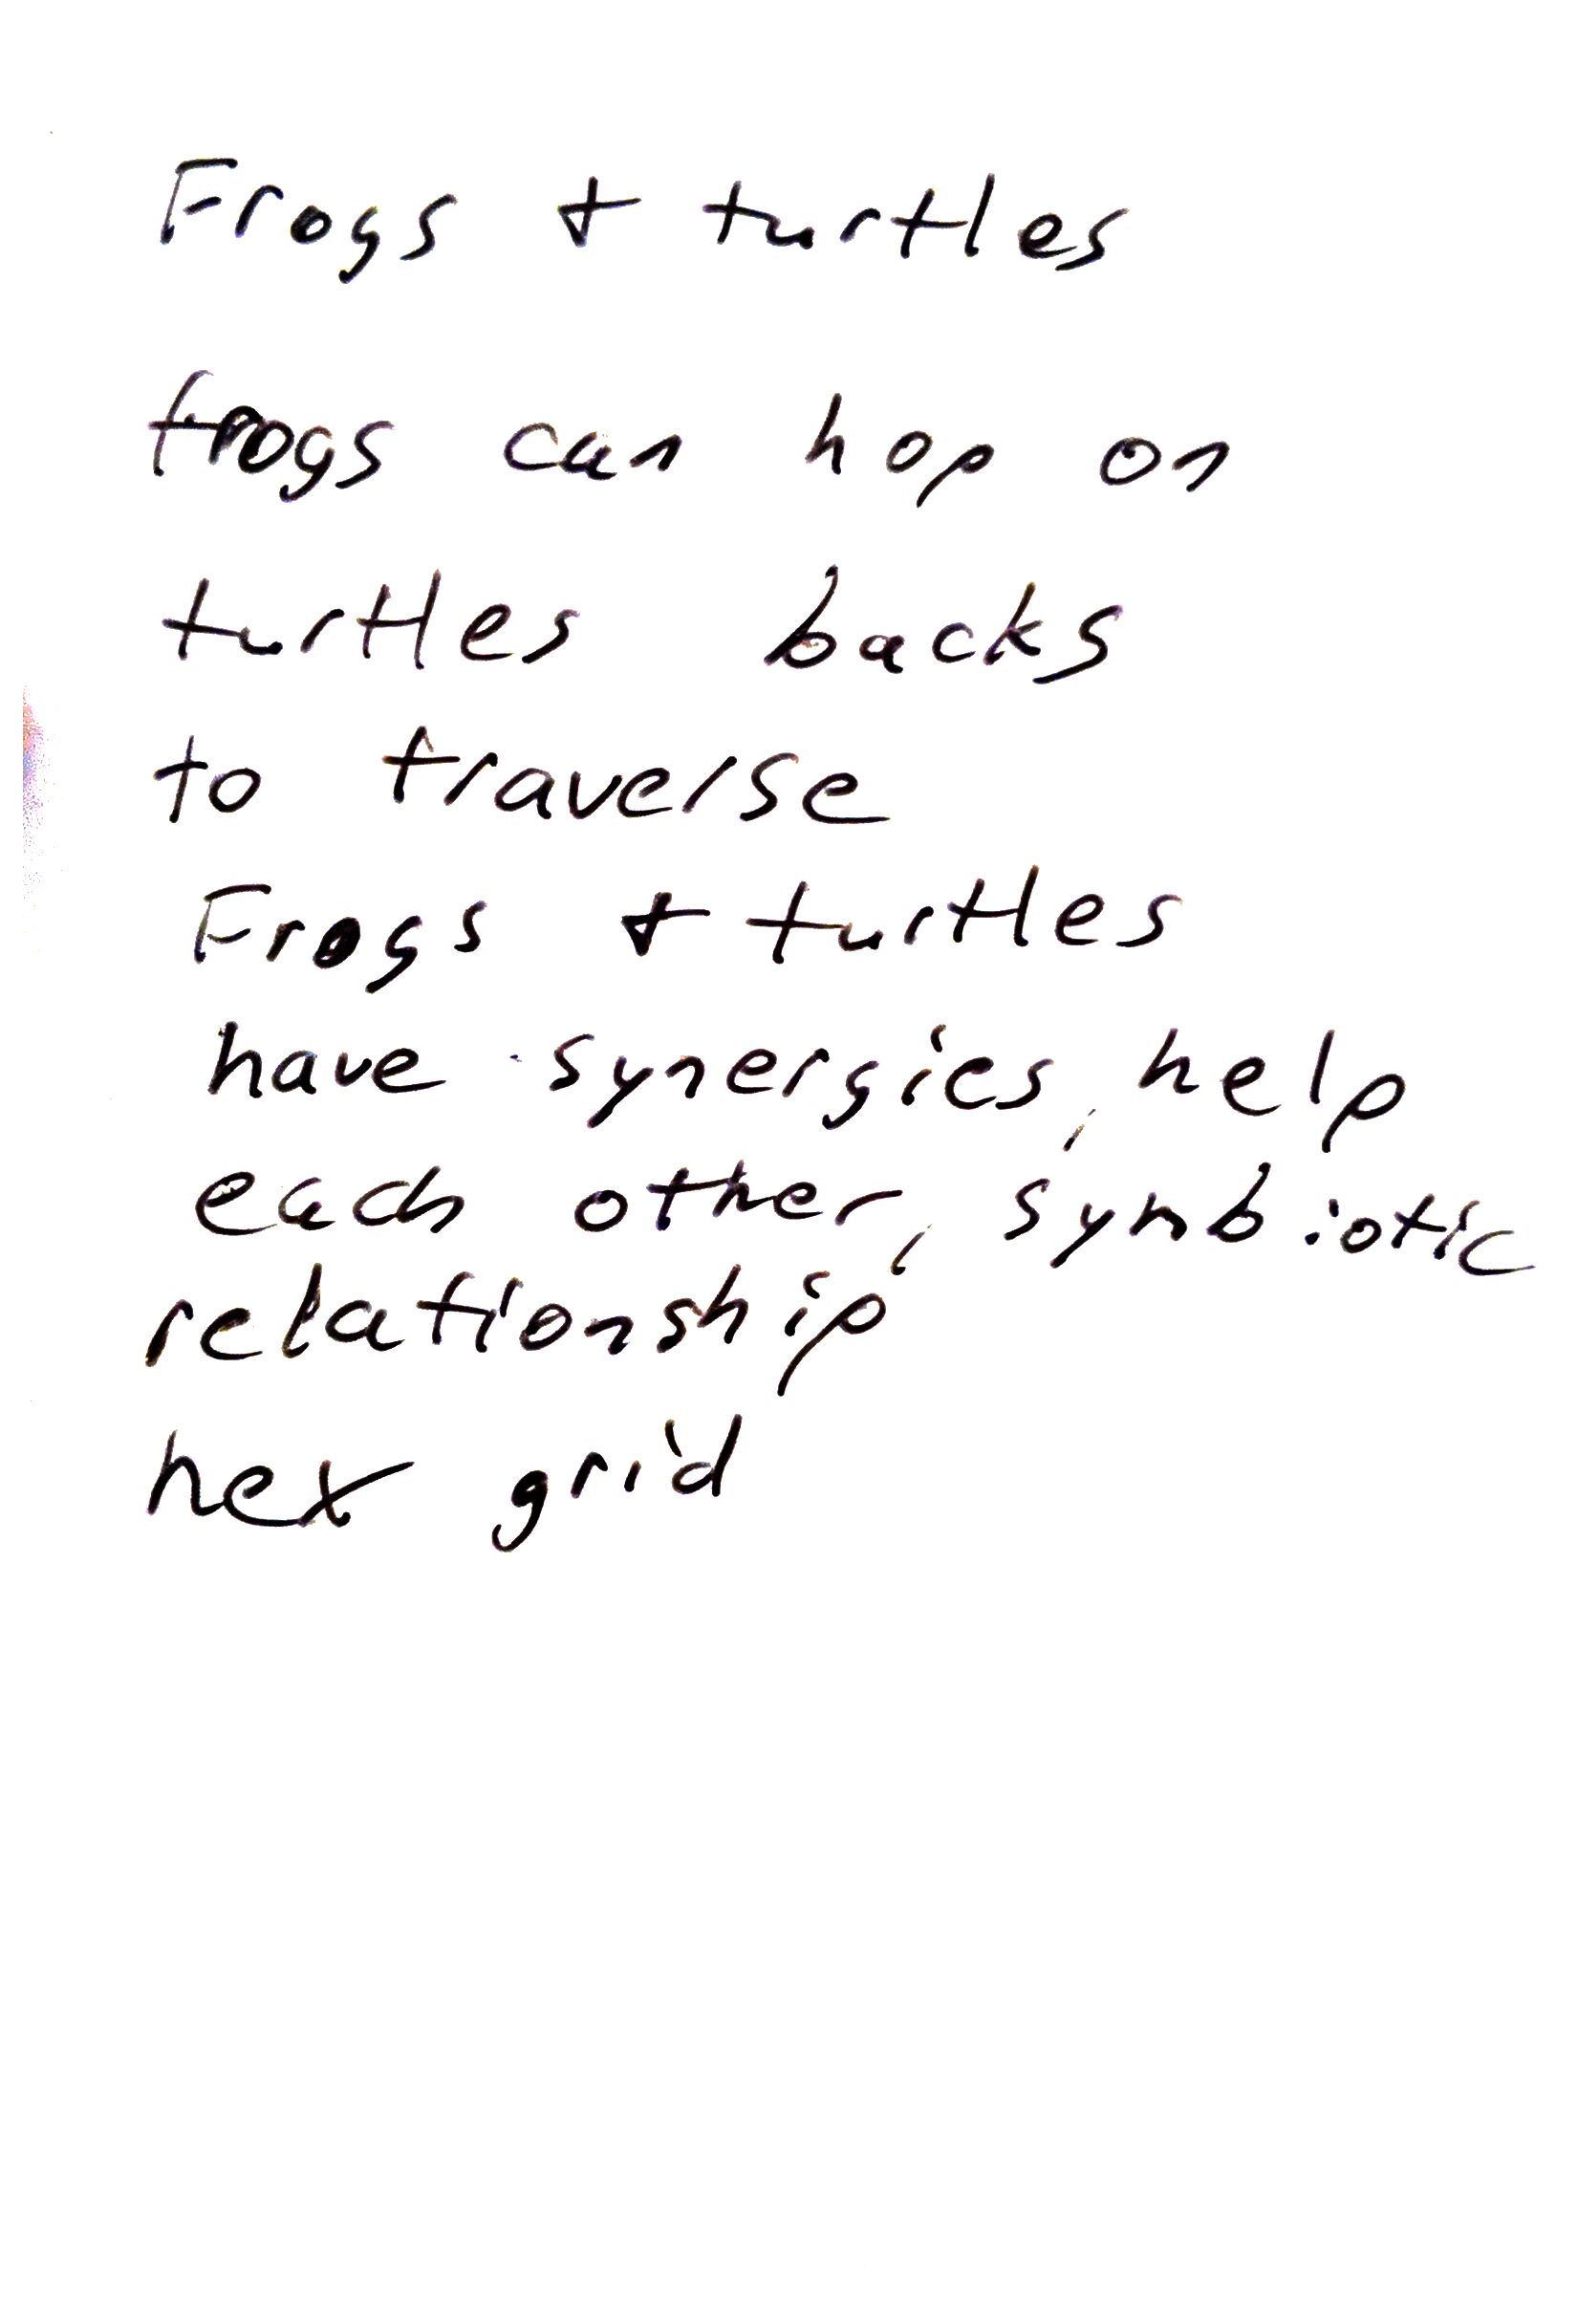 Frogs + turtles
frogs can hop on
turtles backs
to traverse
Frogs + turtles
have synergies, help
each other, symbiotic
relationship
hex grid